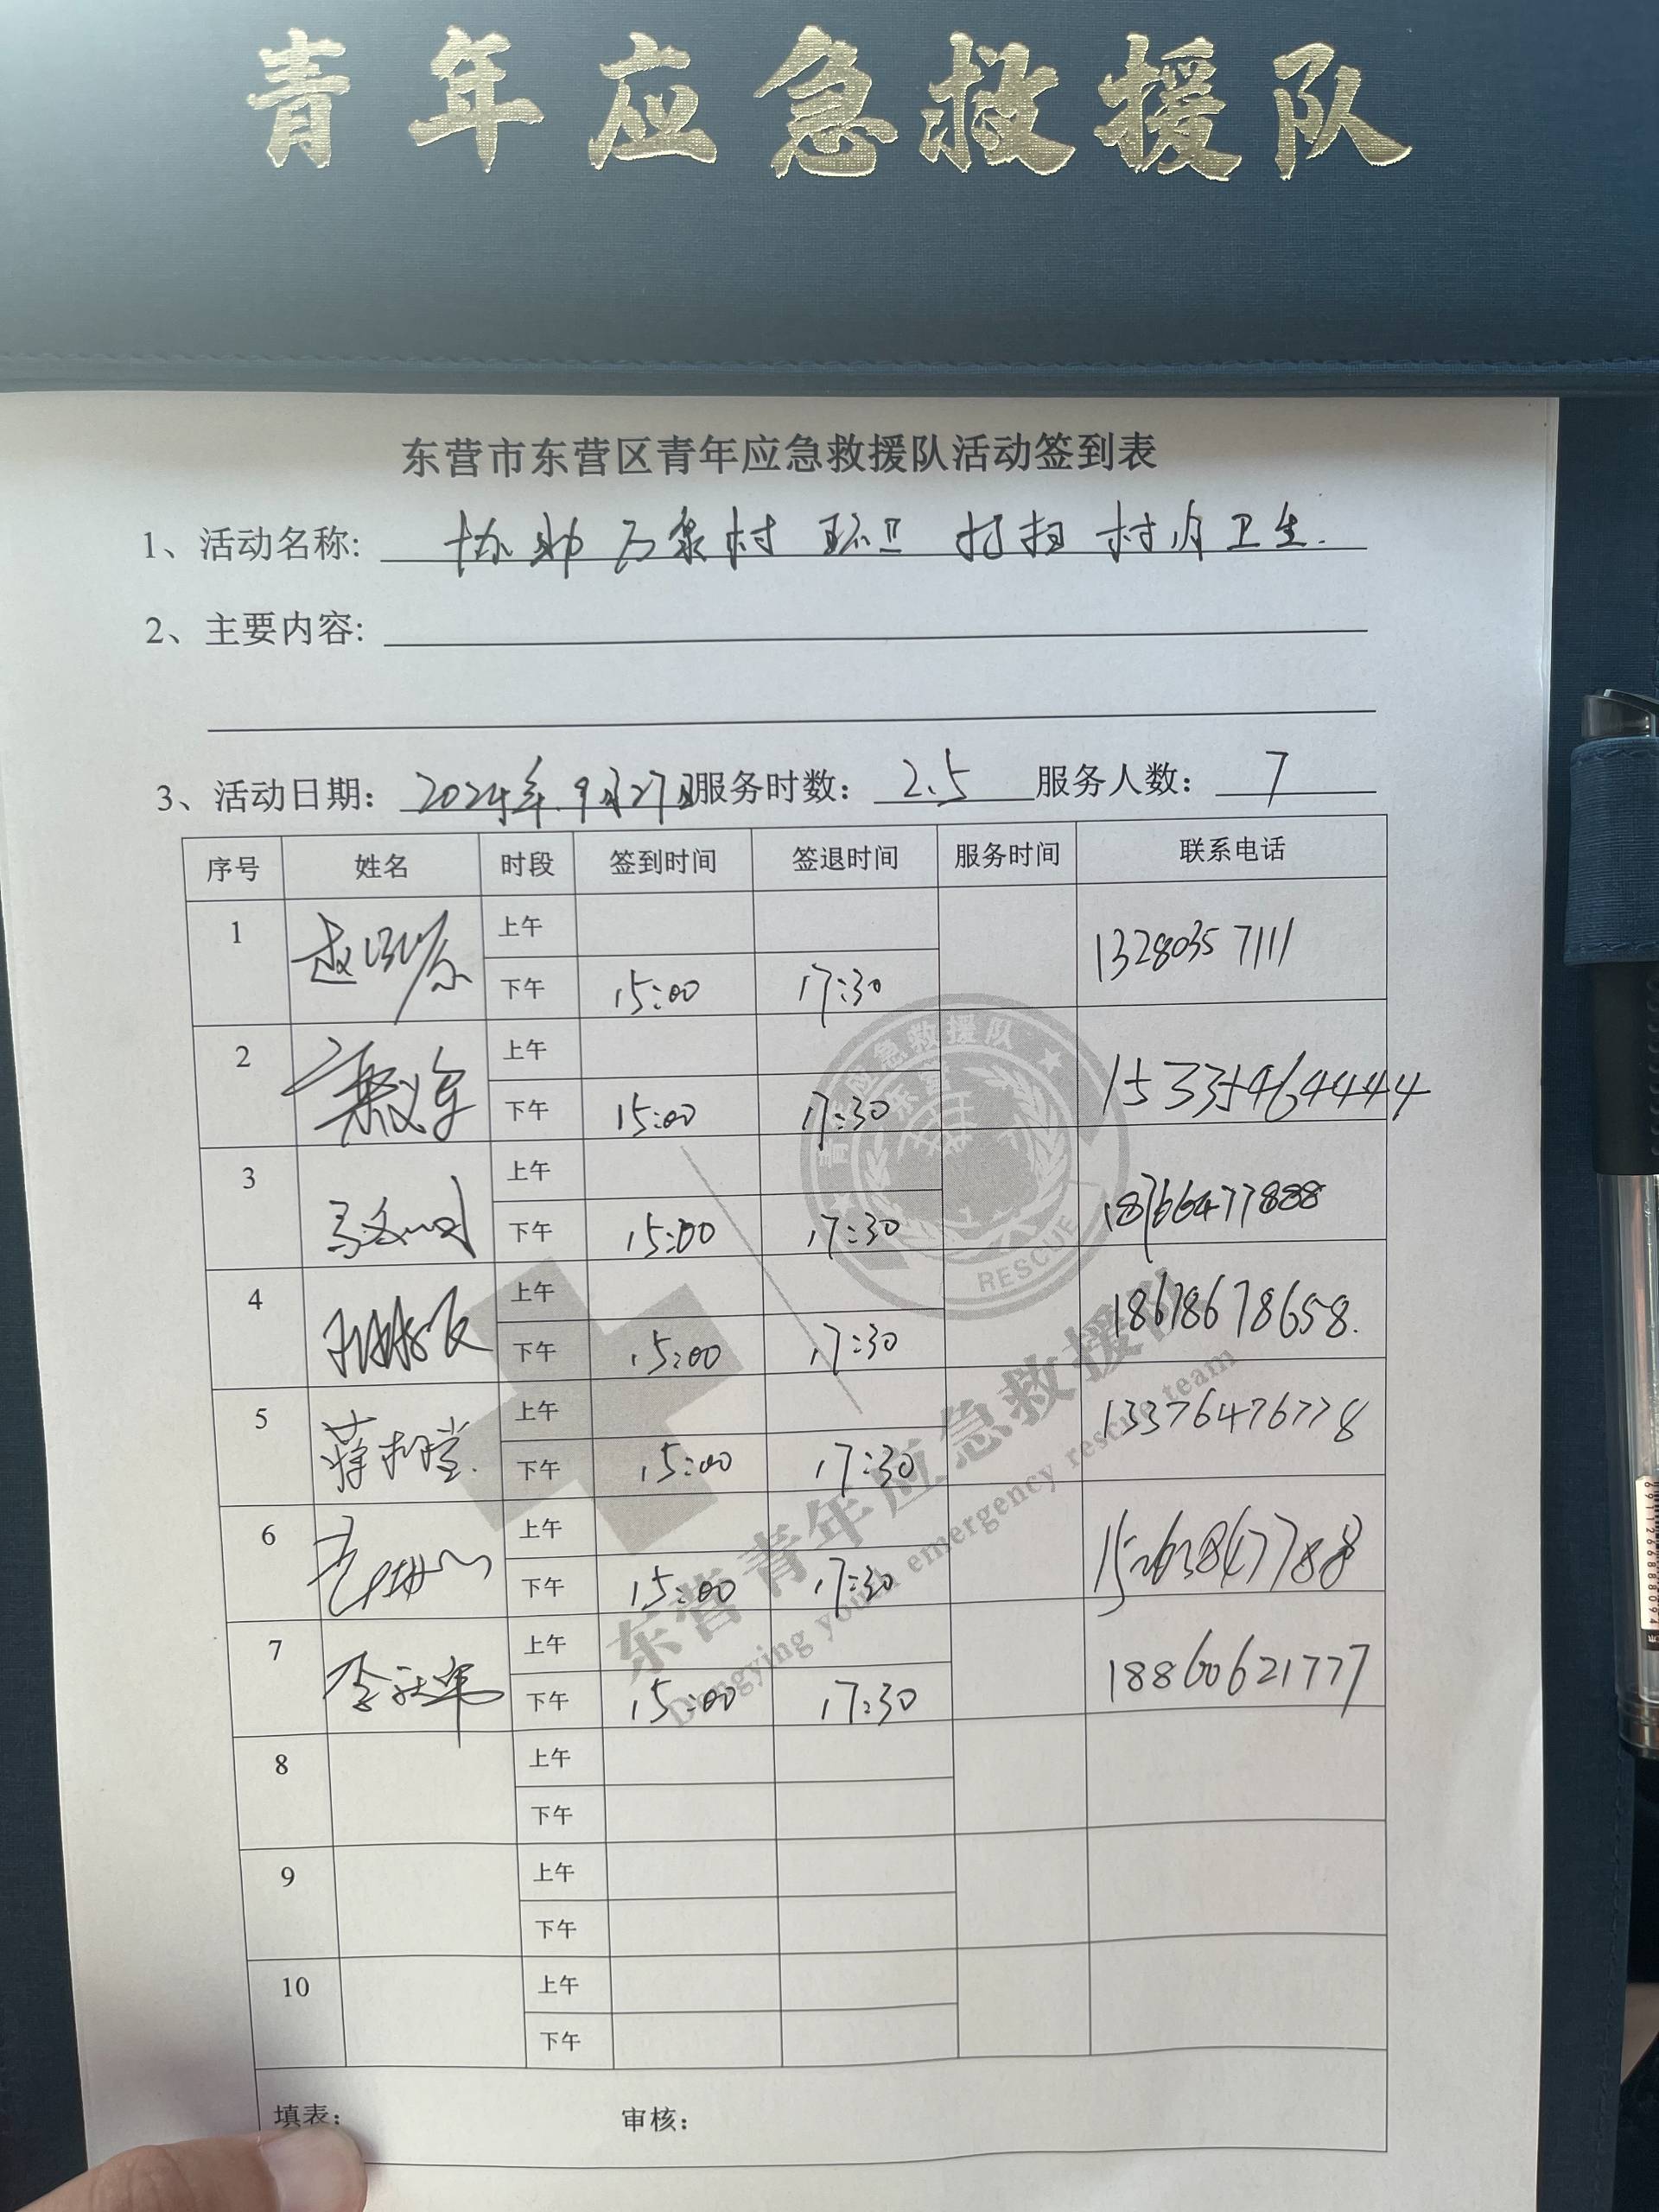 青年应急救援队
东营市东营区青年应急救援队活动签到表
1、活动名称: 协助万泉村环卫打扫村内卫生.
2、主要内容:
3、活动日期: 2024年.9月27日 服务时数: 2.5 服务人数: 7
序号 姓名 时段 签到时间 签退时间 服务时间 联系电话
1 上午
下午 15:00 17:30 13280357111
2 上午
下午 15:00 17:30 15335464444
3 上午
下午 15:00 17:30 18766477888
4 上午
下午 15:00 17:30 18678678658.
5 上午
下午 15:00 17:30 13376476778
6 上午
下午 15:00 17:30
7 上午
下午 15:00 17:30 18860621777
8 上午
下午
9 上午
下午
10 上午
下午
填表: 审核:
青年应急救援队
东营
RESCUE
东营青年应急救援队
Dongying youth emergency rescue team